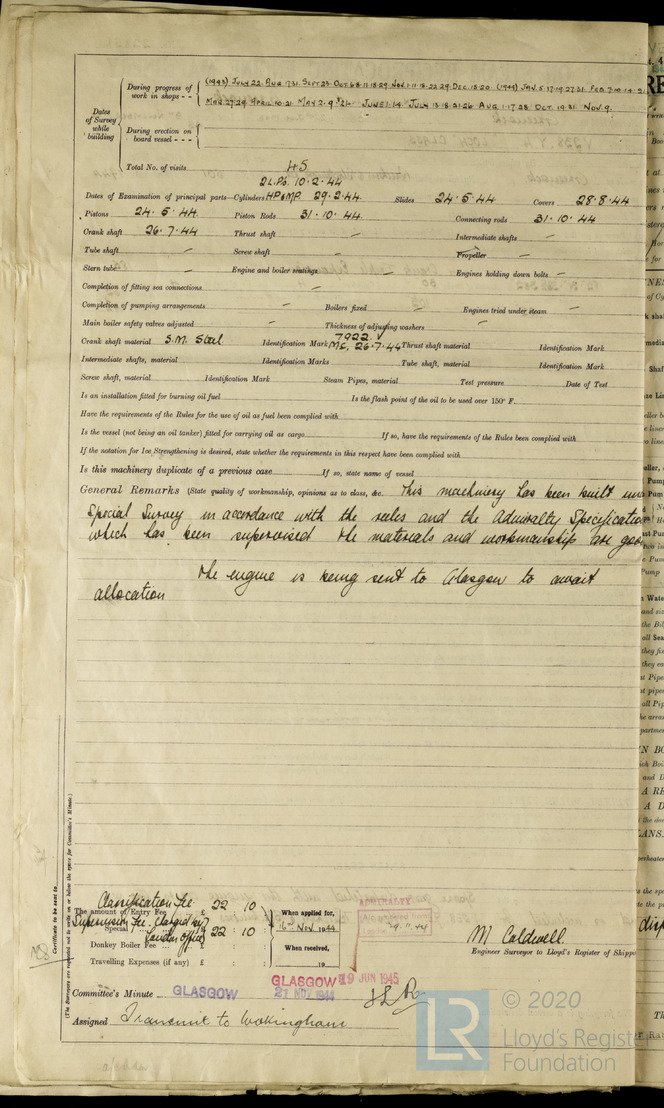 Dates of Survey while building
During progress of work in shops - -
(1943) JULY.22. AUG 7.31. SEPT.23. OCT.6.8.11.18.29. NOV.1.11.18.22.29. DEC.13.20. (1944) JAN.5.17.19.27.31. FEB 7.10.14.
MAR.27.29. APRIL.10.21. MAY.2.9. JUNE.1.14. JULY.13.18.21.26. AUG.1.17.28. OCT.19.31. NOV.9.
During erection on board vessel - - -
Total No. of visits 45
2 L.P's. 10.2.44
Dates of Examination of principal parts—Cylinders HP & MP. 29.2.44. Slides 24.5.44 Covers 28.8.44
Pistons 24.5.44. Piston Rods 31.10.44. Connecting rods 31.10.44
Crank shaft 26.7.44 Thrust shaft — Intermediate shafts —
Tube shaft — Screw shaft — Propeller —
Stern tube — Engine and boiler seatings — Engines holding down bolts —
Completion of fitting sea connections —
Completion of pumping arrangements — Boilers fixed — Engines tried under steam —
Main boiler safety valves adjusted — Thickness of adjusting washers —
Crank shaft material S.M. Steel Identification Mark 7922 MC. 26.7.44 Thrust shaft material Identification Mark
Intermediate shafts, material Identification Marks Tube shaft, material Identification Mark
Screw shaft, material Identification Mark Steam Pipes, material Test pressure Date of Test
Is an installation fitted for burning oil fuel Is the flash point of the oil to be used over 150° F.
Have the requirements of the Rules for the use of oil as fuel been complied with
Is the vessel (not being an oil tanker) fitted for carrying oil as cargo If so, have the requirements of the Rules been complied with
If the notation for Ice Strengthening is desired, state whether the requirements in this respect have been complied with
Is this machinery duplicate of a previous case If so, state name of vessel
General Remarks (State quality of workmanship, opinions as to class, &c. This machinery has been built
Special Survey in accordance with the rules and the Admiralty Specification
which has been supervised the materials and workmanship are
The engine is being sent to Glasgow to await
allocation
Certificate to be sent to
(The Surveyors are requested not to write on or below the space for Committee's Minute.)
Classification Fee
The amount of Entry Fee £ 22 : 10 :
Supervision Fee.
Special £ 22 : 10 :
London Office
Donkey Boiler Fee £ : :
Travelling Expenses (if any) £ : :
When applied for,
16th Nov 1944
When received,
19
ADMIRALTY
29.11.44
M Caldwell.
Engineer Surveyor to Lloyd's Register of Shipp
GLASGOW 19 JUN 1945
Committee's Minute GLASGOW 21 NOV 1944
Assigned Transmit to Wokingham
LR © 2020
Lloyd's Register
Foundation